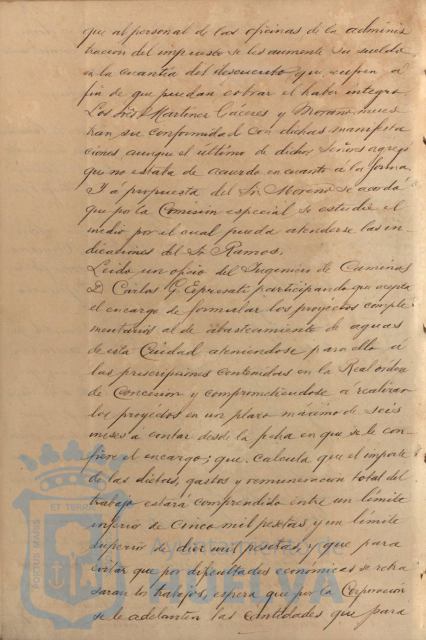 que al personal de las oficinas de la adminis
tracion del impuesto se les aumente su sueldo
en la cuantia del descuento que sufren á
fin de que puedan cobrar el haber integro.
Los Sres Martinez Cáceres y Moreno mues
tran su conformidad con dichas manifesta
ciones, aunque el último de dichos Señores agregó
que no estaba de acuerdo en cuanto á la forma.
Y á propuesta del Sr Moreno se acordó
que por la Comision especial se estudie el
medio por el cual pueda atenderse las in
dicaciones del Sr Ramos.
Leido un oficio del Ingeniero de Caminos
D Carlos participando que acepta
el encargo de formular los proyectos comple
mentarios al de abastecimiento de aguas
de esta Ciudad ateniendose para ello á
las prescripciones contenidas en la Real orden
de Concesion y comprometiendose á realizar
los proyectos en un plazo máximo de seis
meses á contar desde la fecha en que se le con
fiere el encargo; que calcula que el importe
de las dietas, gastos y remuneracion total del
trabajo estará comprendido entre un límite
inferior de Cinco mil pesetas y un límite
superior de diez mil pesetas y que para
evitar que por dificultades económicas se retra
saran los trabajos, espera que por la Corporacion
se le adelanten las cantidades que para
PORTUS MARIS ET TERRAE
Ayuntamiento de
HUELVA